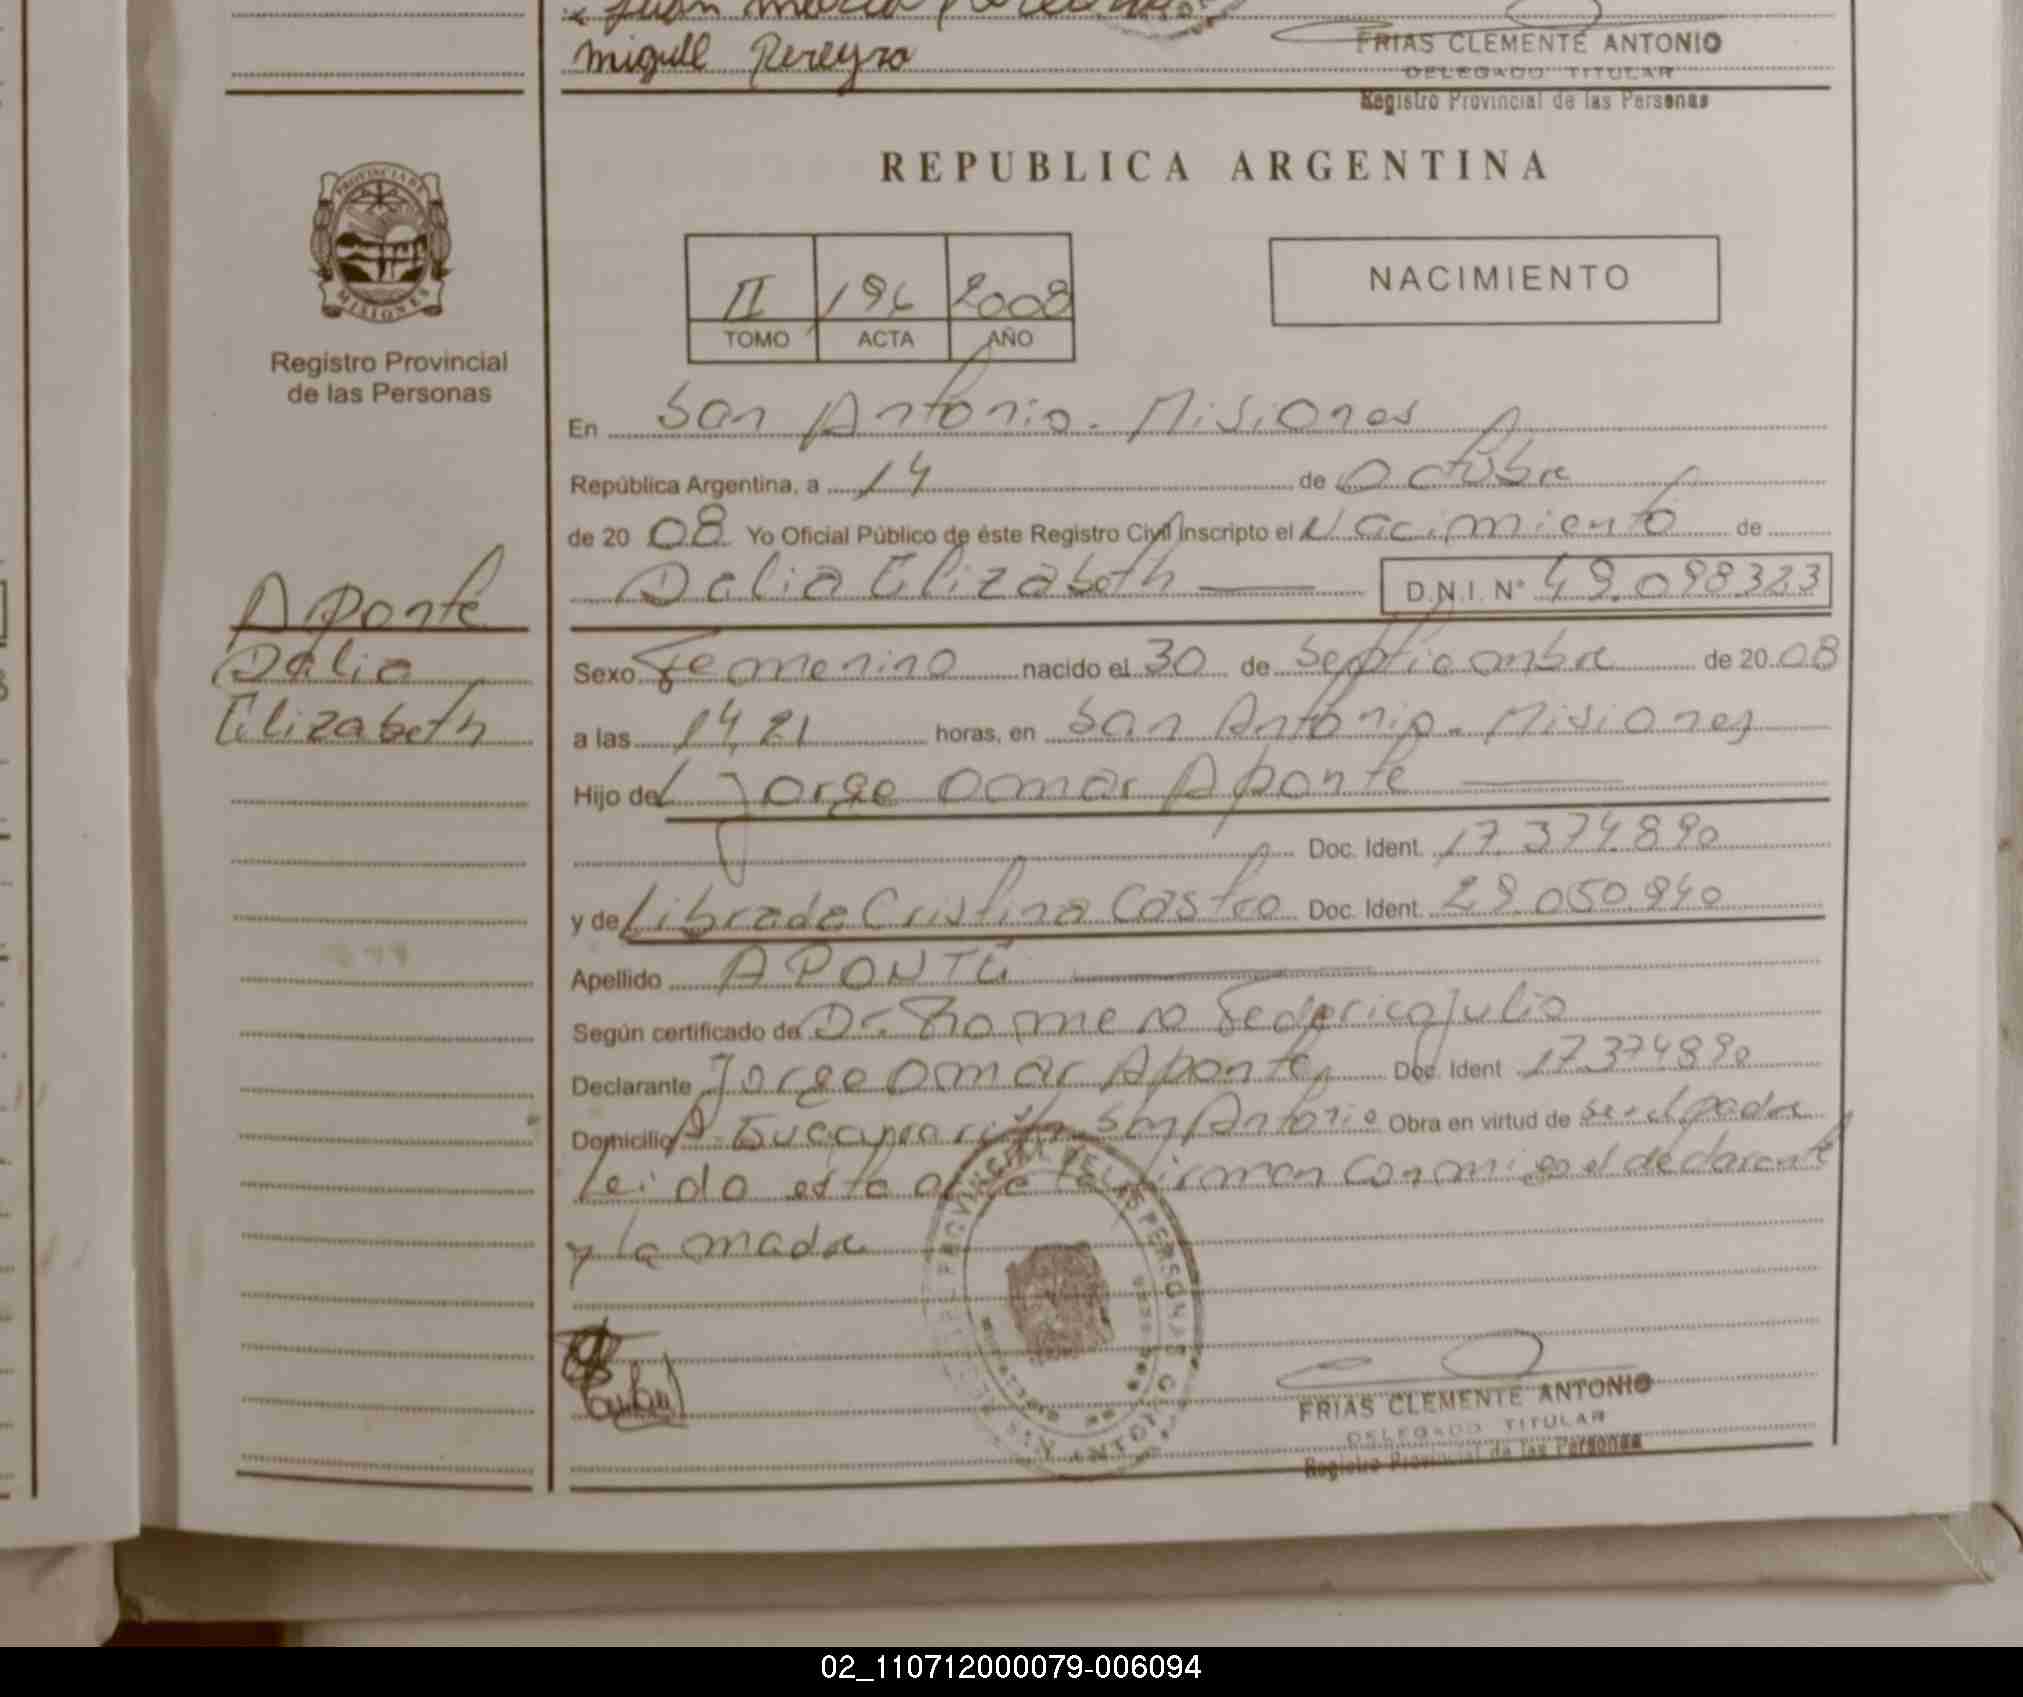 Miguel Pereyra
FRIAS CLEMENTE ANTONIO
DELEGADO TITULAR
Registro Provincial de las Personas
REPUBLICA ARGENTINA
PROVINCIA DE
MISIONES
Registro Provincial
de las Personas
II 196 2008
TOMO ACTA AÑO
NACIMIENTO
En San Antonio - Misiones
República Argentina, a 14 de Octubre
de 2008 Yo Oficial Público de éste Registro Civil Inscripto el Nacimiento de
Dalia Elizabeth D.N.I. Nº 49.098323
Aponte
Dalia
Elizabeth
Sexo Femenino nacido el 30 de Septiembre de 2008
a las 14,21 horas, en San Antonio - Misiones
Hijo de Jorge Omar Aponte
Doc. Ident. 17.374.890
y de Librada Cristina Castro Doc. Ident. 29.050.940
Apellido APONTE
Según certificado de Dr. Romero Federico Julio
Declarante Jorge Omar Aponte Doc. Ident 17.374890
Domicilio San Antonio Obra en virtud de ser el padre
Leido esta acta la firman conmigo el declarante
y la madre
FRIAS CLEMENTE ANTONIO
DELEGADO TITULAR
Registro Provincial de las Personas
02_110712000079-006094